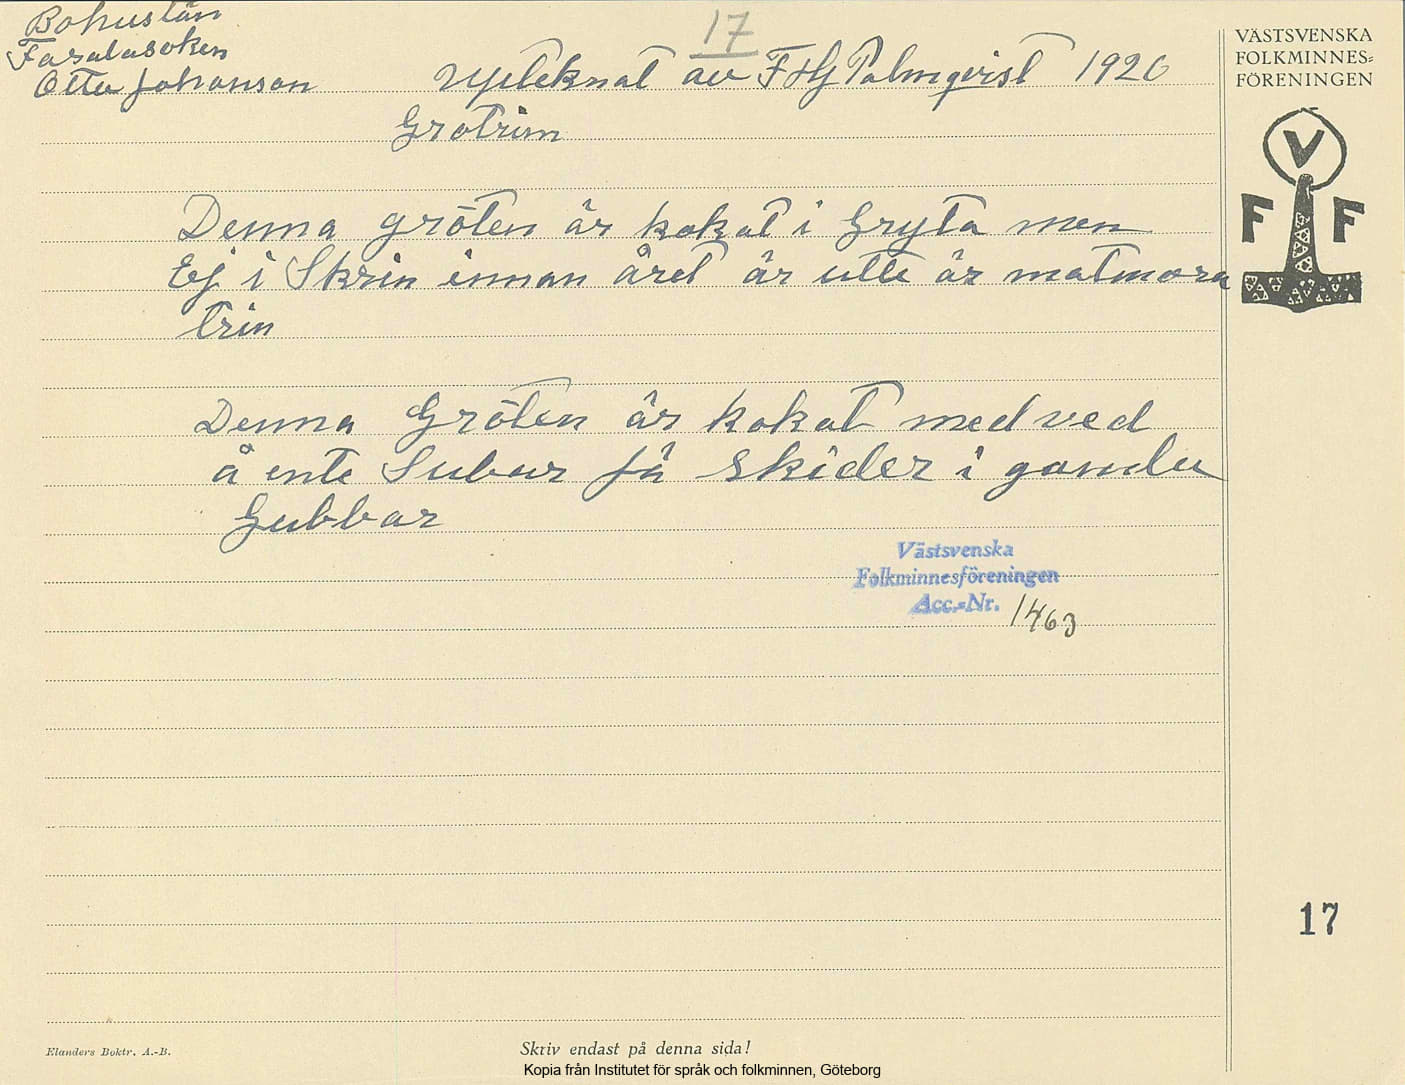 17
Bohuslän
Foralasoken
Otto Johanson
Upteknat av F H G Palmqvist 1926
Grotrim
Denna gröten är kokat i Gryta men
Ej i Skrin innan året är utte är matmora
trin
Denna Gröten är kokat med ved
å ente Subar få skider i gamla
Gubbar
Västsvenska
Folkminnesföreningen
Acc.-Nr. 1463
VÄSTSVENSKA
FOLKMINNES-
FÖRENINGEN
V
F F
17
Elanders Boktr. A.-B.
Skriv endast på denna sida!
Kopia från Institutet för språk och folkminnen, Göteborg